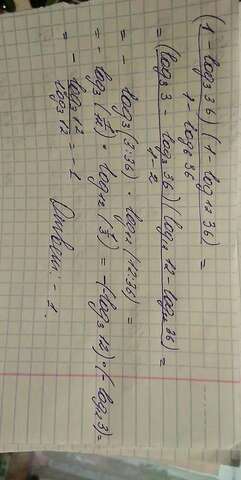 (1 - log₃ 36)(1 - log₁₂ 36) / (1 - log₆ 36) =
= (log₃ 3 - log₃ 36)(log₁₂ 12 - log₁₂ 36) / (1 - 2) =
= - log₃(3:36) · log₁₂(12:36) =
= - log₃(1/12) · log₁₂(1/3) = -(-log₃ 12) · (-log₁₂ 3) =
= - log₃ 12 / log₃ 12 = -1
Ответ: -1.